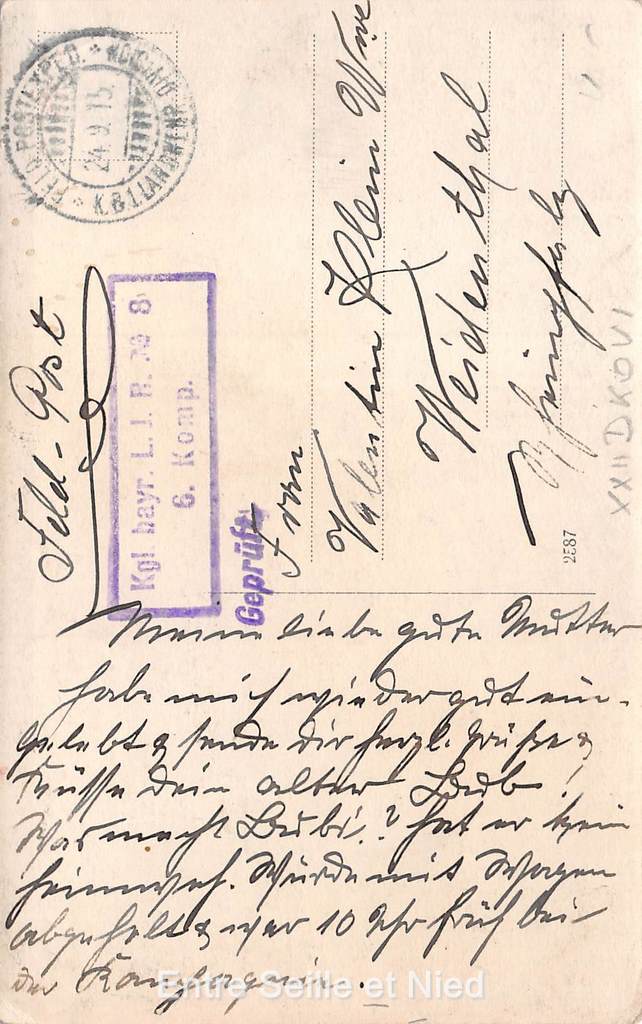 FELD-POSTEXPED. * K.B.1 LANDWEHR
24.9.15.
Feld-Post
Kgl. bayr. L. I. R. № 8
6. Komp.
Geprüft
Frau
Valentin Klein Wwe
Weidenthal
Rheinpfalz
2587
XXII DKOVI
Meine liebe gute Mutter
habe mich wieder gut ein-
gelebt & sende dir herzl. Grüße &
Küsse dein alter Bub!
Was macht Bubi? hat er kein
Heimweh. Würde mit Wagen
abgeholt & war 10 Uhr früh bei
der Kompagnie.
Entre Seille et Nied